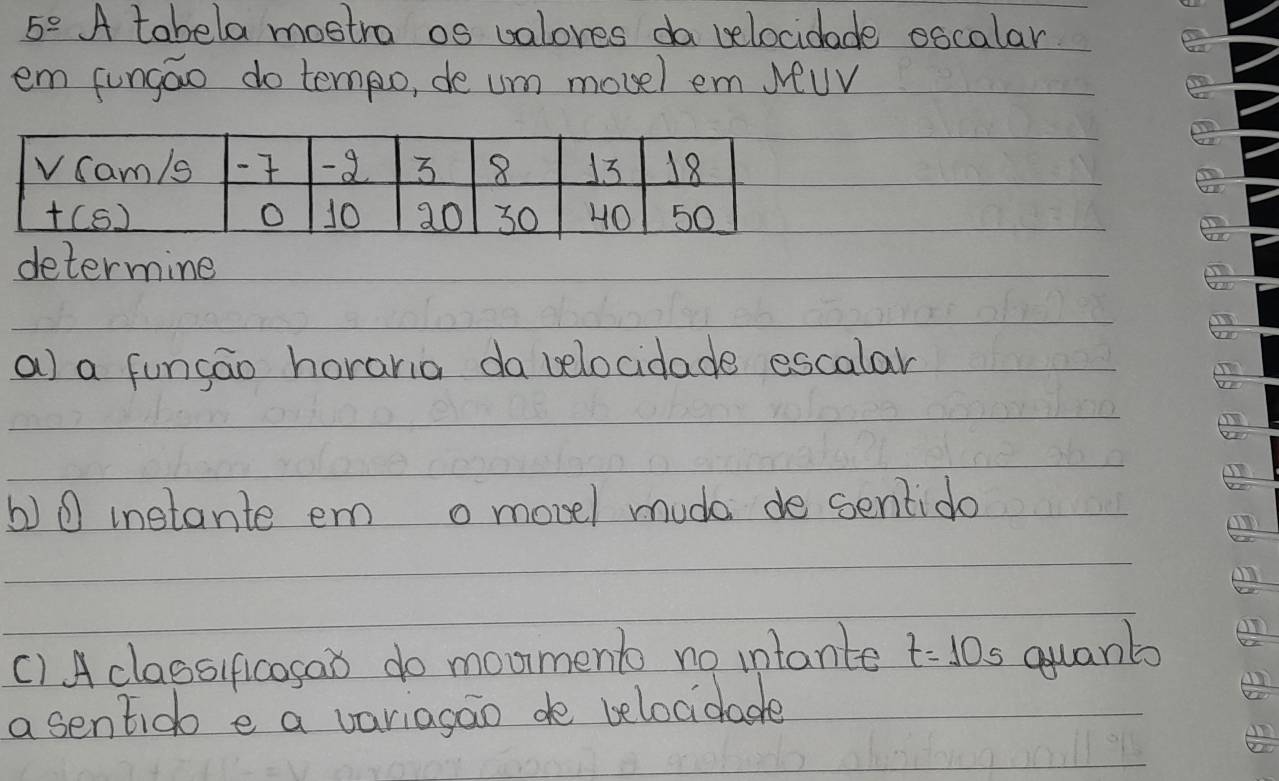 5º A tabela mostra os valores da velocidade escalar
em função do tempo, de um movel em MUV
V (am/s -7 -2 3 8 13 18
t(s) 0 10 20 30 40 50
determine
a) a função horaria da velocidade escalar
b) O instante em o movel muda de sentido
c) A classificação do movimento no intante t=10s quanto
a sentido e a variação de velocidade